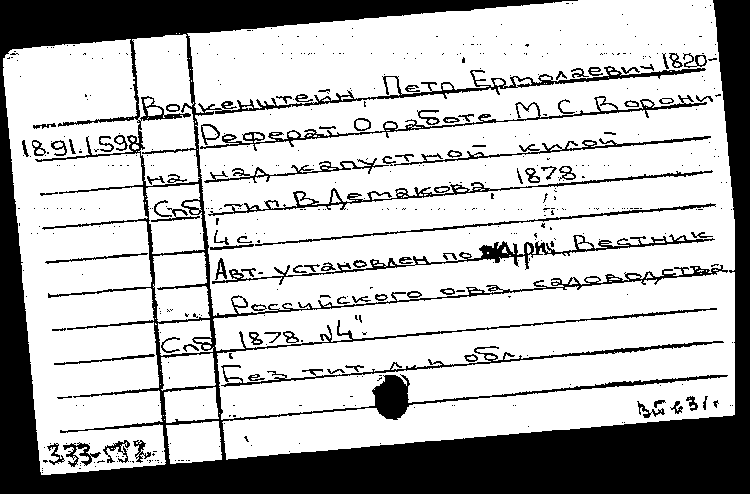 Волкенштейн, Петр Ермолаевич, 1820-
18.91.1.598 Реферат. О работе М.С. Ворони-
на над капустной килой
Спб, тип. В. Демакова, 1878.
4 с.
Авт. установлен по журн. „Вестник
Российского о-ва садоводства
Спб, 1878. №4".
Без тит. л. и обл.
333-592